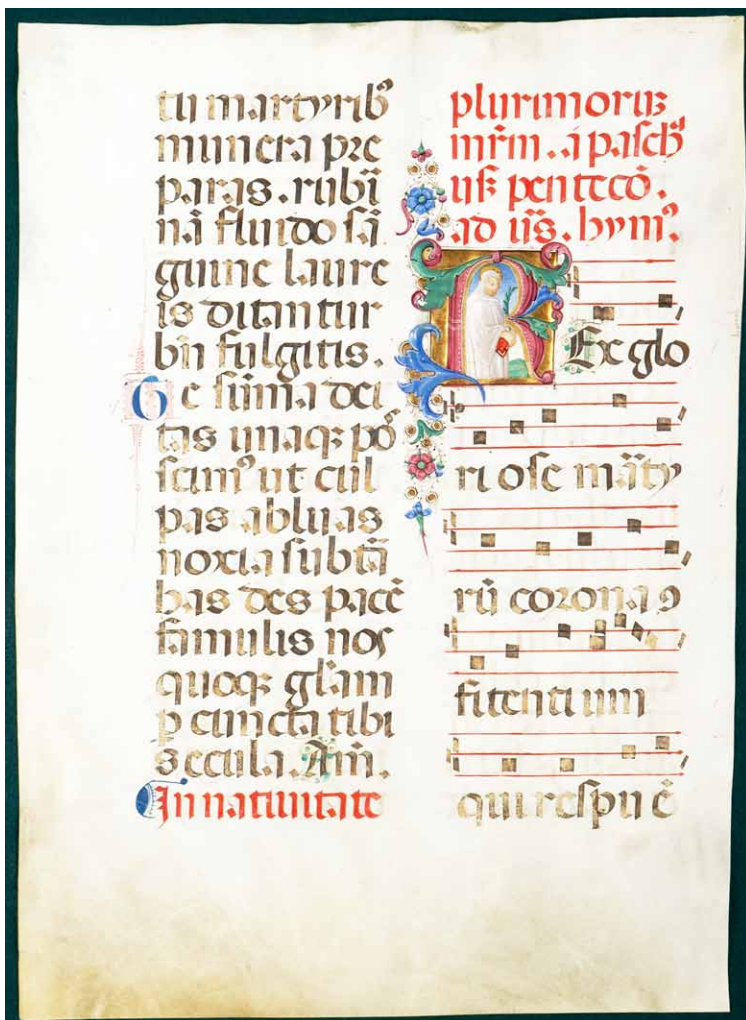 tu martyribꝰ
munera pre
paras . rubī
nā fluido sā
guine laure
is ditantur
bn̄ fulgitis .
Te sūma dei
tas unaqꝫ po
scimꝰ ut cul
pas abluas
noxia subtā
has des pacē
famulis nos
quoqꝫ glām
p cuncta tibi
secula . Am̄ .
In natiuitate
plurimorūꝫ
mr̄m . a pasch
usqꝫ pentecō .
ad us̄ . hymꝰ .
Rex glo
riose mārty
rū corona ꝯ
fitentium
qui respuē